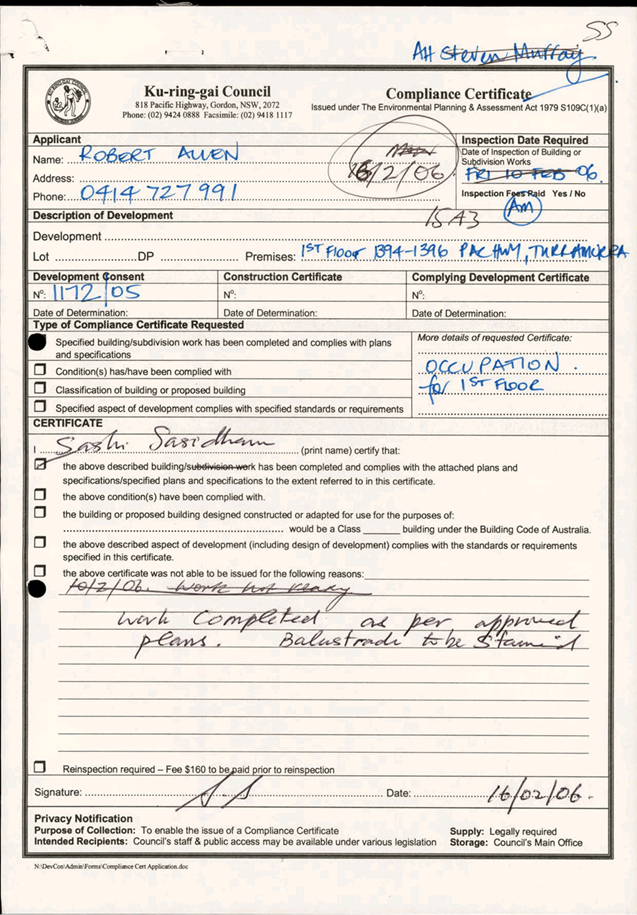 SS
Att Steven Murray
Ku-ring-gai Council
818 Pacific Highway, Gordon, NSW, 2072
Phone: (02) 9424 0888 Facsimile: (02) 9418 1117
Compliance Certificate
Issued under The Environmental Planning & Assessment Act 1979 S109C(1)(a)
Applicant
Name: ROBERT ALLEN
Address:
Phone: 0414 727 991
16/2/06
Inspection Date Required
Date of Inspection of Building or
Subdivision Works
FRI 10 FEB 06.
Inspection Fees Paid Yes / No
AM
15A3
Description of Development
Development
Lot DP Premises: 1ST FLOOR 1394-1396 PAC HWY, TURRAMURRA
Development Consent Construction Certificate Complying Development Certificate
Nº: 1172/05 Nº: Nº:
Date of Determination: Date of Determination: Date of Determination:
Type of Compliance Certificate Requested
Specified building/subdivision work has been completed and complies with plans
and specifications
Condition(s) has/have been complied with
Classification of building or proposed building
Specified aspect of development complies with specified standards or requirements
More details of requested Certificate:
OCCUPATION.
for 1ST FLOOR
CERTIFICATE
I Sashi Sasidharn (print name) certify that:
the above described building/subdivision work has been completed and complies with the attached plans and
specifications/specified plans and specifications to the extent referred to in this certificate.
the above condition(s) have been complied with.
the building or proposed building designed constructed or adapted for use for the purposes of:
would be a Class building under the Building Code of Australia.
the above described aspect of development (including design of development) complies with the standards or requirements
specified in this certificate.
the above certificate was not able to be issued for the following reasons:
10/2/06. Work not ready
Work Completed as per approved
plans. Balustrade to be
Reinspection required – Fee $160 to be paid prior to reinspection
Signature: Date: 16/02/06.
Privacy Notification
Purpose of Collection: To enable the issue of a Compliance Certificate
Intended Recipients: Council's staff & public access may be available under various legislation
Supply: Legally required
Storage: Council's Main Office
N:\DevCon\Admin\Forms\Compliance Cert Application.doc